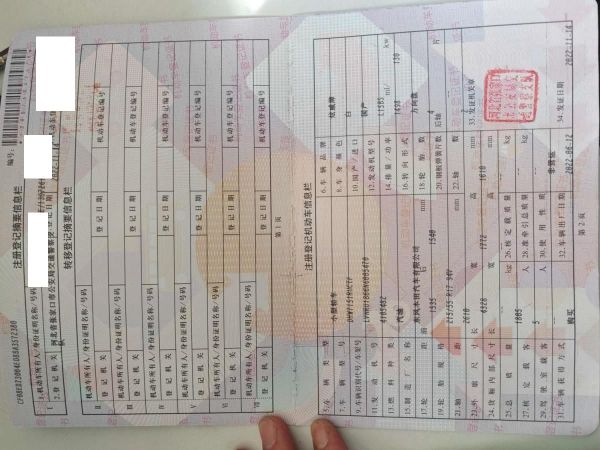 编号:
注册登记摘要信息栏
1.机动车所有人/身份证明名称/号码
2.登记机关 河北省张家口市公安局交通警察支队 登记日期 机动车登记编号
转移登记摘要信息栏
机动车所有人/身份证明名称/号码
登记机关 登记日期 机动车登记编号
机动车所有人/身份证明名称/号码
登记机关 登记日期 机动车登记编号
机动车所有人/身份证明名称/号码
登记机关 登记日期 机动车登记编号
机动车所有人/身份证明名称/号码
登记机关 登记日期 机动车登记编号
机动车所有人/身份证明名称/号码
登记机关 登记日期 机动车登记编号
机动车所有人/身份证明名称/号码
登记机关 登记日期 机动车登记编号
第1页
注册登记机动车信息栏
5.车辆类型 小型轿车 6.车辆品牌
7.车辆型号 8.车身颜色 白
9.车辆识别代号/车架号 10.国产/进口 国产
11.发动机号 12.发动机型号 L15B5
13.燃料种类 汽油 14.排量/功率 1498 ml/ 130 kw
15.制造厂名称 东风本田汽车有限公司 16.转向形式 方向盘
17.轮距 前 1535 后 1540 mm 18.轮胎数 4
19.轮胎规格 215/55 R17 94V 20.钢板弹簧片数 后轴 片
21.轴距 2610 mm 22.轴数 2
23.外廓尺寸 长 4328 宽 1772 高 1610 mm 33.发证机关章
24.货厢内部尺寸 长 宽 高 mm
25.总质量 1805 kg 26.核定载质量 kg
27.核定载客 5 人 28.准牵引总质量 kg
29.驾驶室载客 人 30.使用性质 非营运
31.车辆获得方式 购买 32.车辆出厂日期 2022-06-12 34.发证日期 2022-11-14
第2页